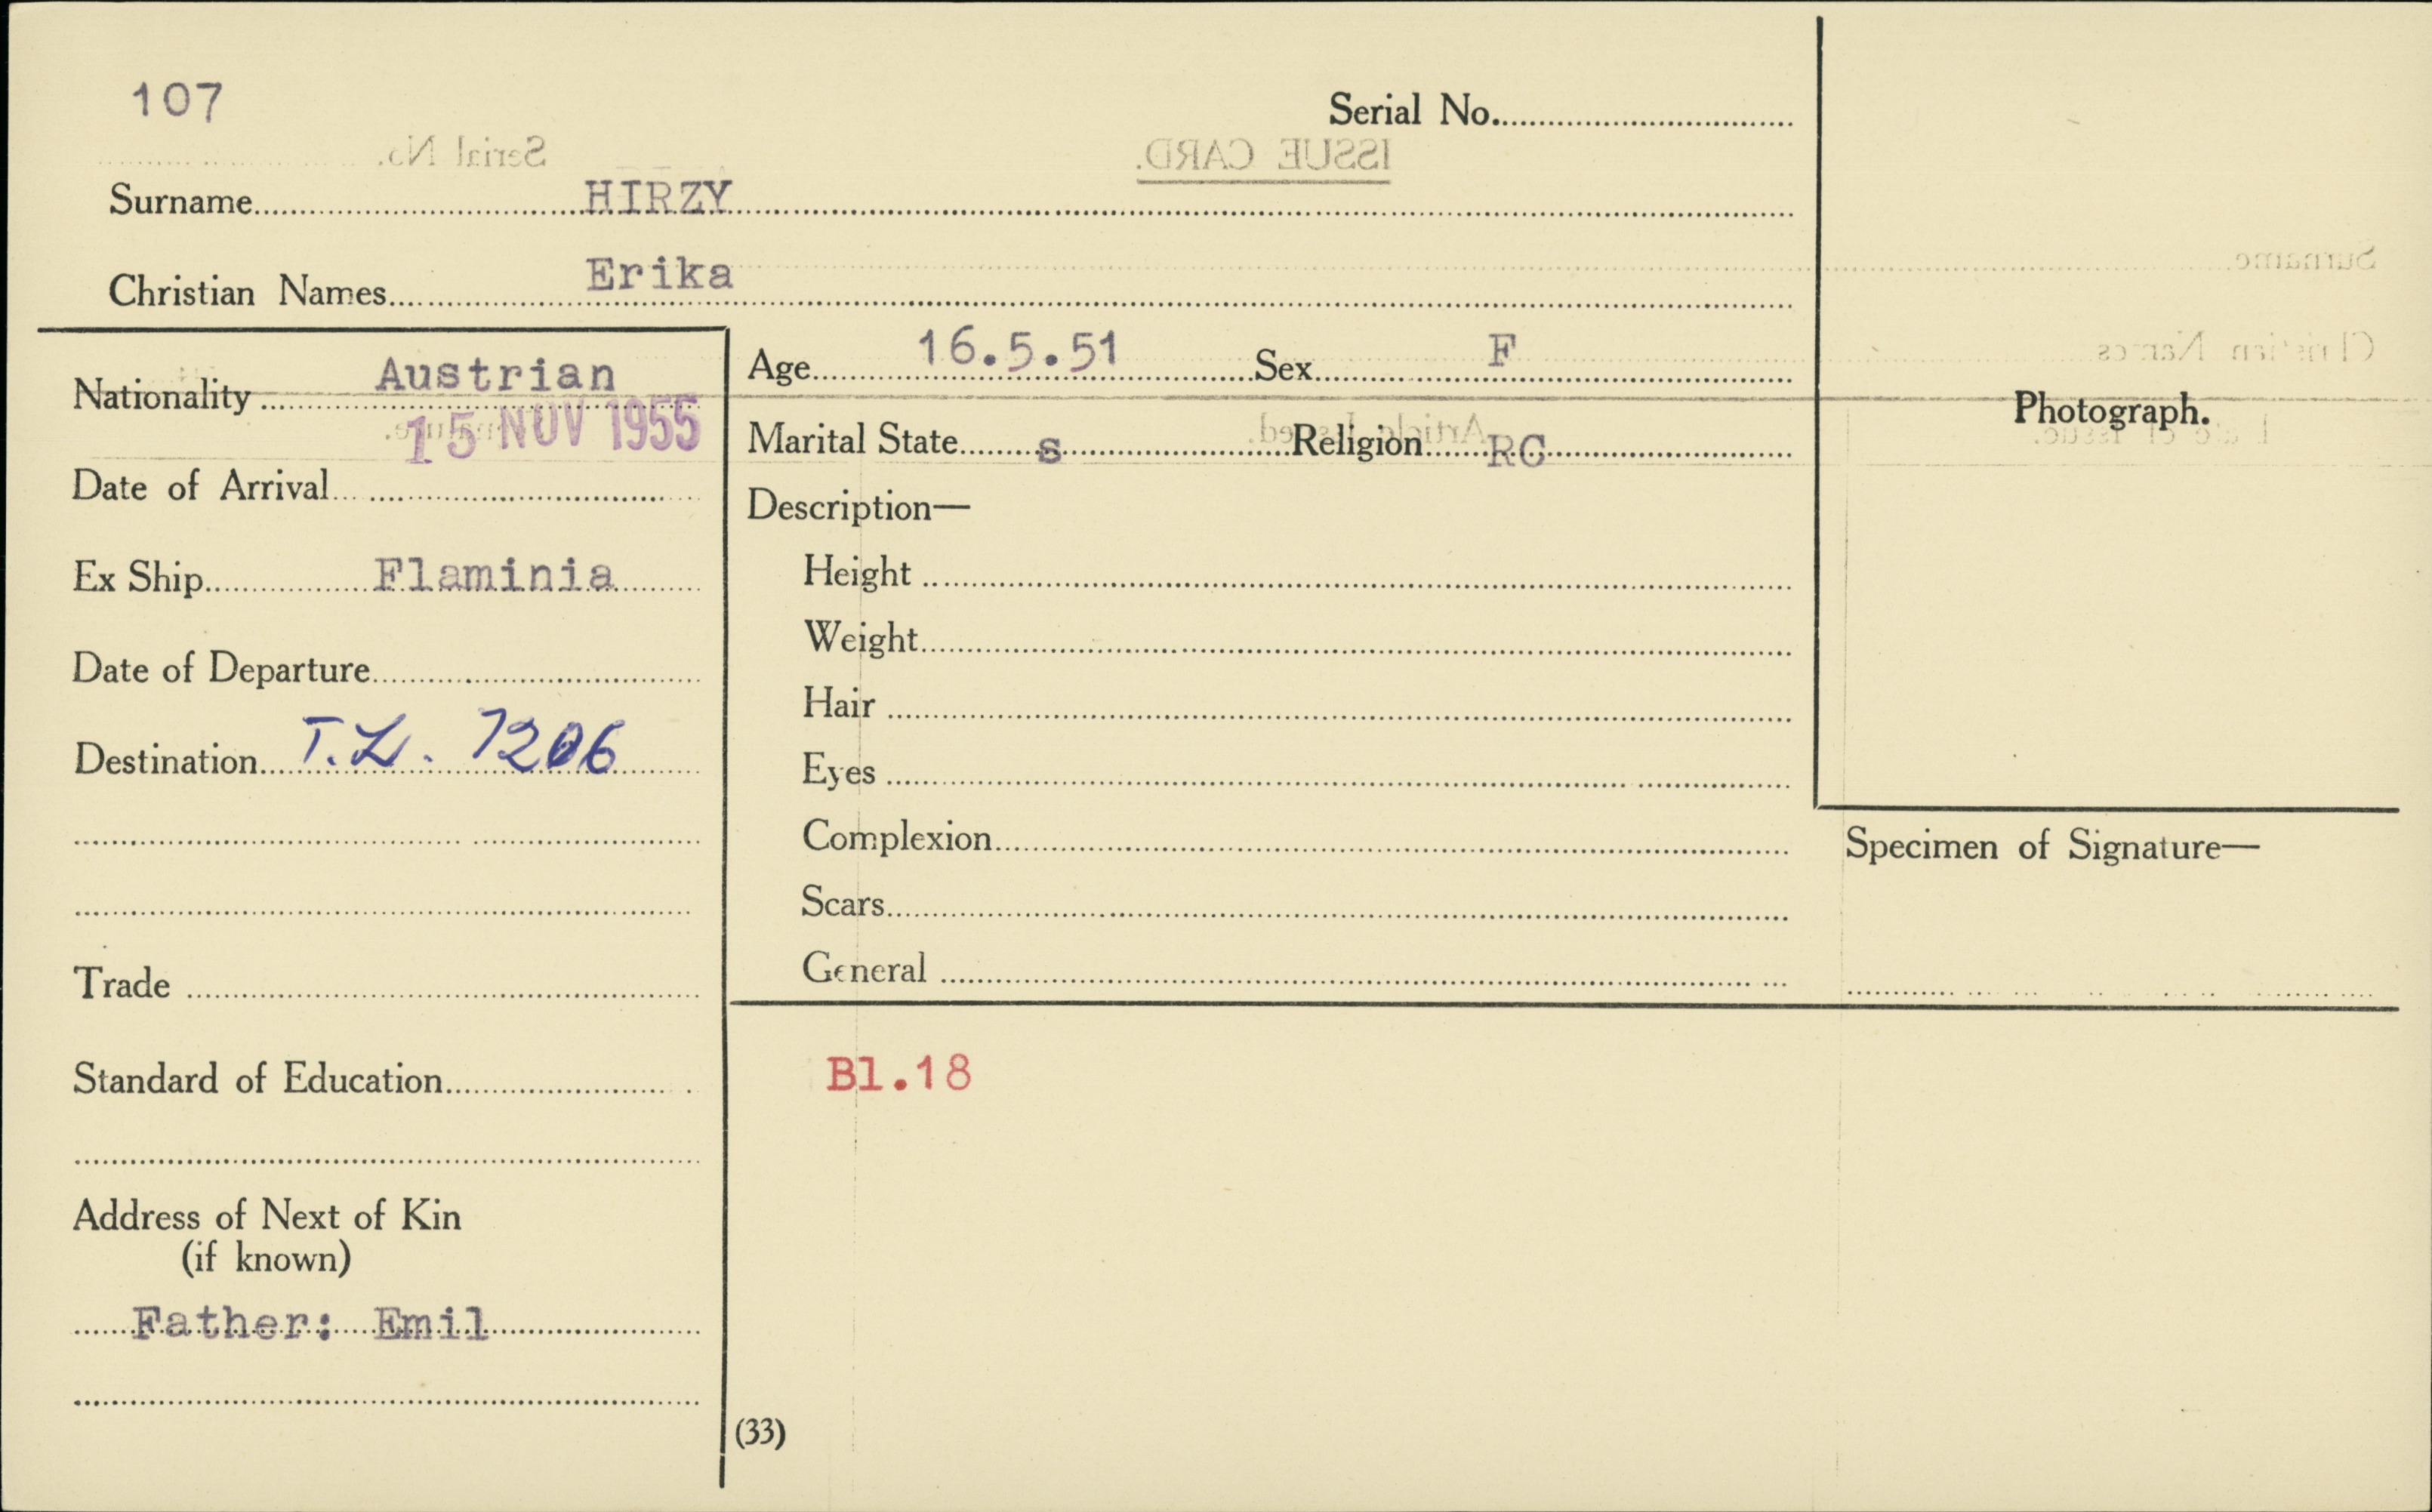 107
Serial No.
Serial No.
ISSUE CARD.
Surname HIRZY
Surname
Christian Names Erika
Christian Names
Nationality Austrian
Age 16.5.51 Sex F
15 NOV 1955
Marital State s Religion RC
Article Issued.
Photograph.
Date of Issue.
Date of Arrival
Description—
Ex Ship Flaminia
Height
Weight
Date of Departure
Hair
Destination T.L. 7206
Eyes
Complexion
Specimen of Signature—
Scars
Trade
General
Standard of Education
Bl.18
Address of Next of Kin
(if known)
Father: Emil
(33)